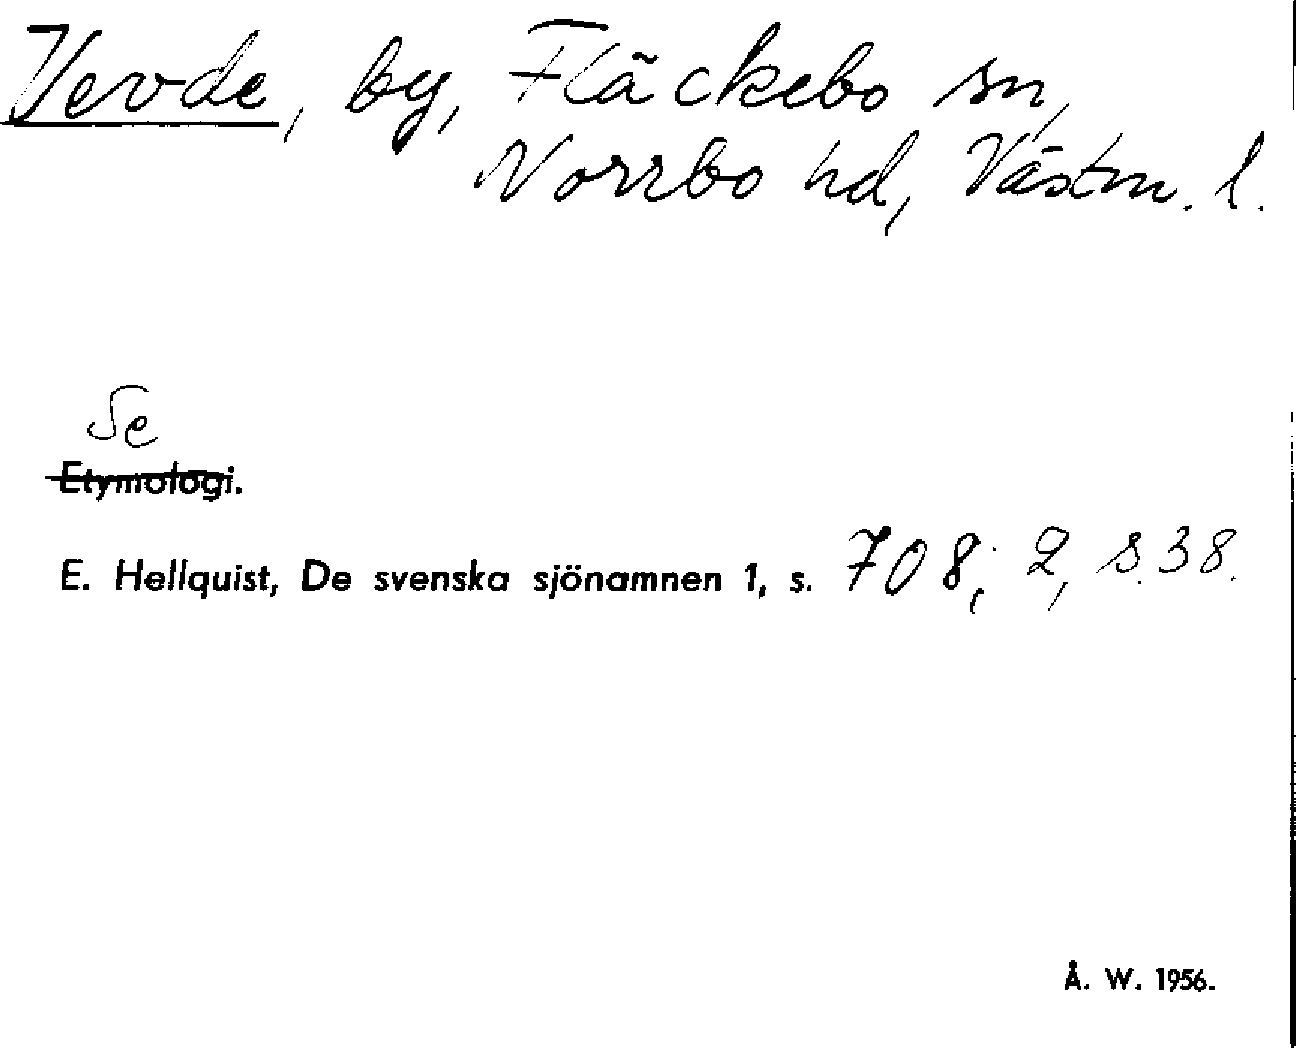 Vevde, by, Fläckebo sn,
Norrbo hd, Västm. l.
Se
Etymologi.
E. Hellquist, De svenska sjönamnen 1, s. 708; 2, s. 38.
Å. W. 1956.